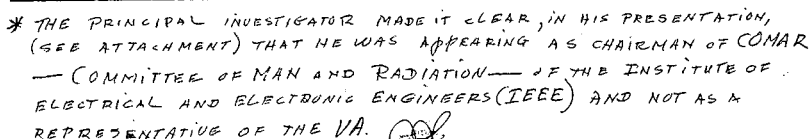 * THE PRINCIPAL INVESTIGATOR MADE IT CLEAR, IN HIS PRESENTATION,
(SEE ATTACHMENT) THAT HE WAS APPEARING AS CHAIRMAN OF COMAR
— COMMITTEE OF MAN AND RADIATION — OF THE INSTITUTE OF
ELECTRICAL AND ELECTRONIC ENGINEERS (IEEE) AND NOT AS A
REPRESENTATIVE OF THE VA.